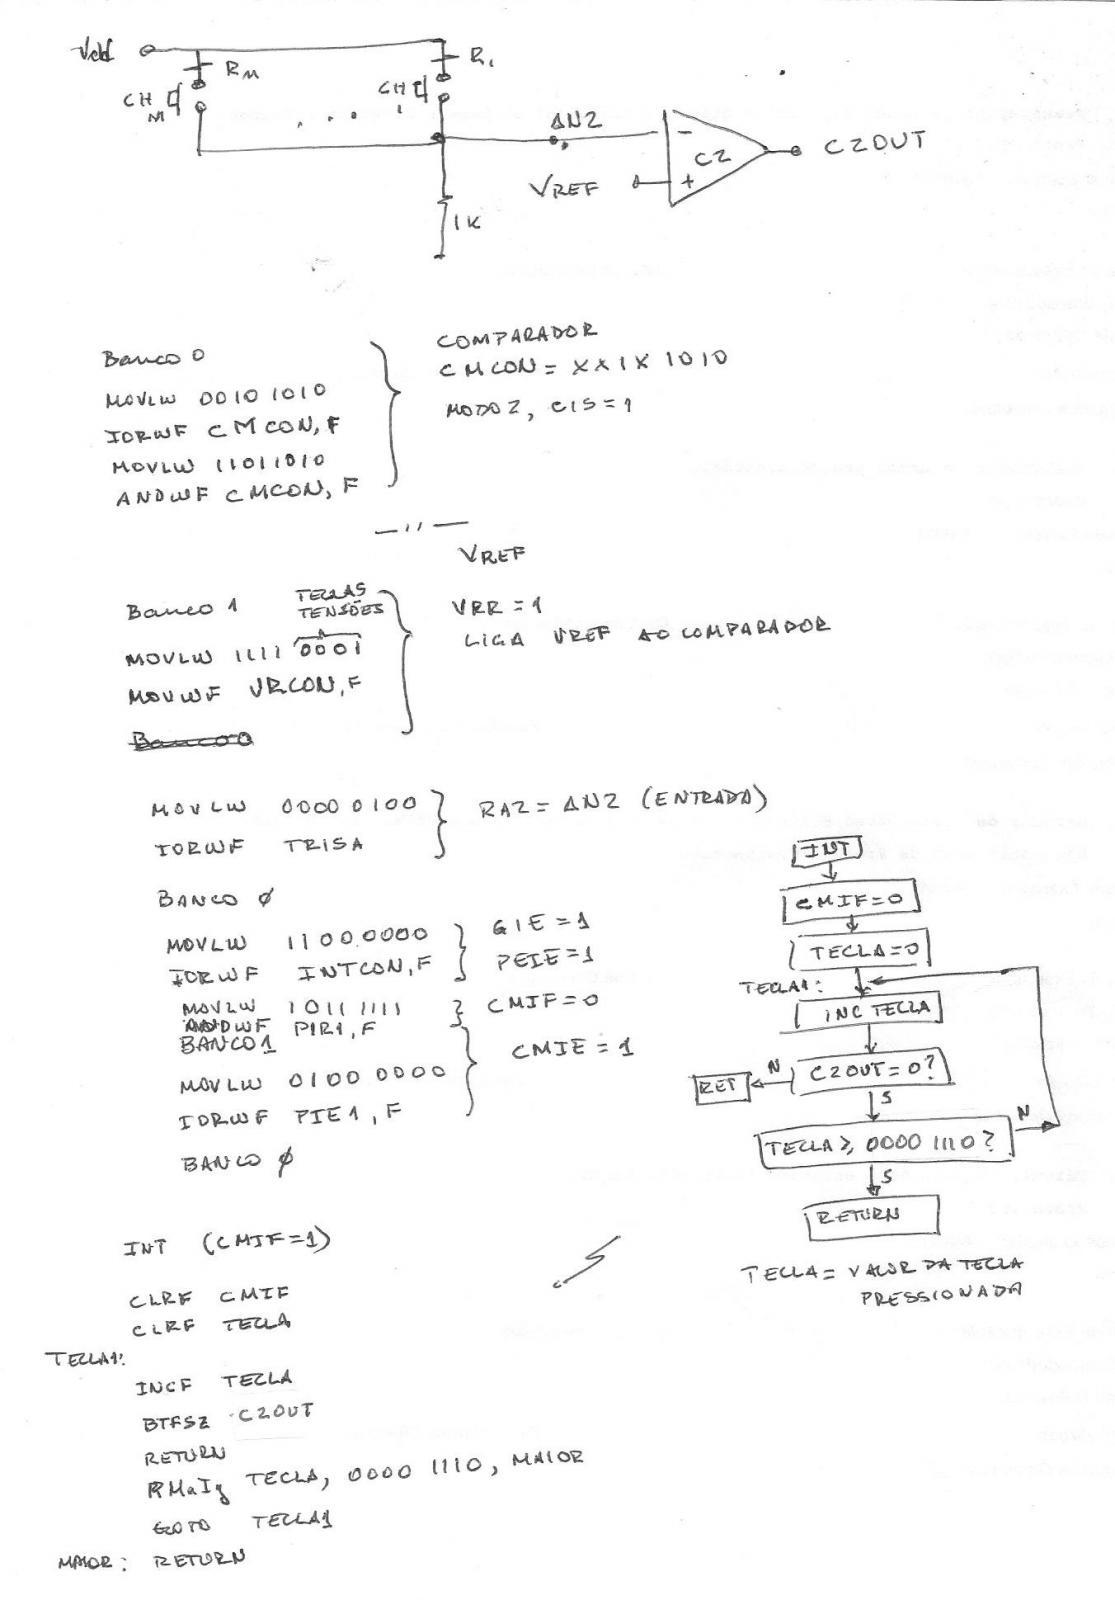 Vdd
RM
R1
CH M
CH 1
. . . .
AN2
- C2
C2OUT
VREF
+
1K
Banco 0
MOVLW 0010 1010
IORWF CMCON, F
MOVLW 11011010
ANDWF CMCON, F
COMPARADOR
CMCON = XX1X 1010
MODO 2, CIS=1
— '' —
VREF
Banco 1
TECLAS
TENSÕES
MOVLW 1111 0001
MOVWF VRCON,F
Banco 0
VRR = 1
LIGA VREF AO COMPARADOR
MOVLW 0000 0100
IORWF TRISA
RA2 = AN2 (ENTRADA)
BANCO φ
MOVLW 1100 0000
IORWF INTCON,F
GIE = 1
PEIE = 1
MOVLW 1011 1111
ANDWF PIR1,F
CMIF = 0
BANCO 1
MOVLW 0100 0000
IORWF PIE1, F
CMIE = 1
BANCO φ
INT (CMIF=1)
CLRF CMIF
CLRF TECLA
TECLA1:
INCF TECLA
BTFSZ C2OUT
RETURN
RMaIg TECLA, 0000 1110, MAIOR
GOTO TECLA1
MAIOR: RETURN
INT
CMIF=0
TECLA=0
TECLA1:
INC TECLA
C2OUT=0?
N
RET
S
TECLA ≥ 0000 1110?
N
S
RETURN
TECLA = VALOR DA TECLA
PRESSIONADA